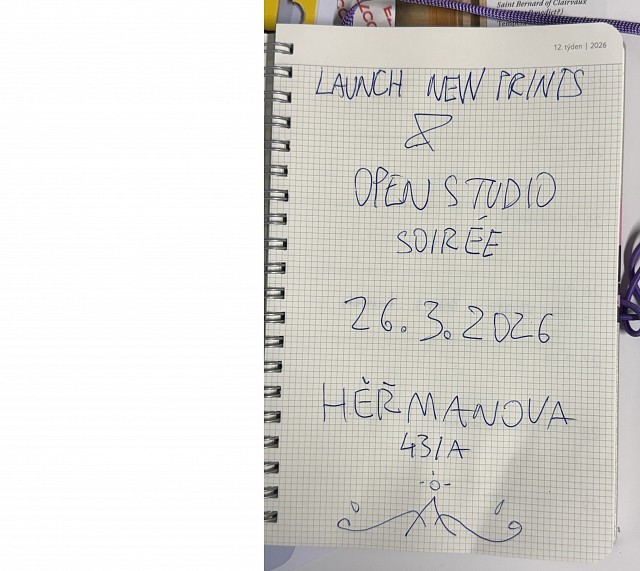 Saint Bernard of Clairvaux
12. týden | 2026
LAUNCH NEW PRINTS
&
OPEN STUDIO
SOIRÉE
26.3.2026
HĚŘMANOVA
43/A